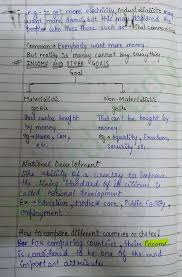 e.g:- to get more electricity, industrialists may
want more dams, but this may
people who live there such as tribal communities
Common → Everybody want more money
But really is money cannot buy everything
# INCOME AND OTHER GOALS
Goal
Materialistic Non-Materialistic
goals goals
That can be bought That can't be bought
by money by money
Eg → House, Car, Eg → Equality, Freedom,
etc. security etc.
National Development
The ability of a country to improve
the living standard of its citizens is
called national development
Ex → Education, Medical care, Public facility,
employment
How to compare different countries or states?
For comparing countries, their Income
is considered to be one of the most
important attributes